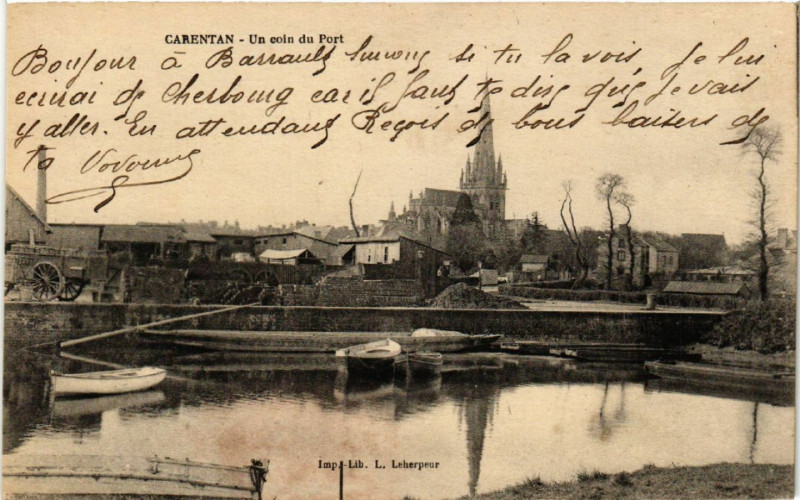 CARENTAN - Un coin du Port
Bonjour à Barrault Simong si tu la vois, Je lui
ecrirai de Cherbourg car il faut te dire que Je vais
y aller. En attendant Reçois de bons baisers de
ta Vovonne
Imp.-Lib. L. Leherpeur